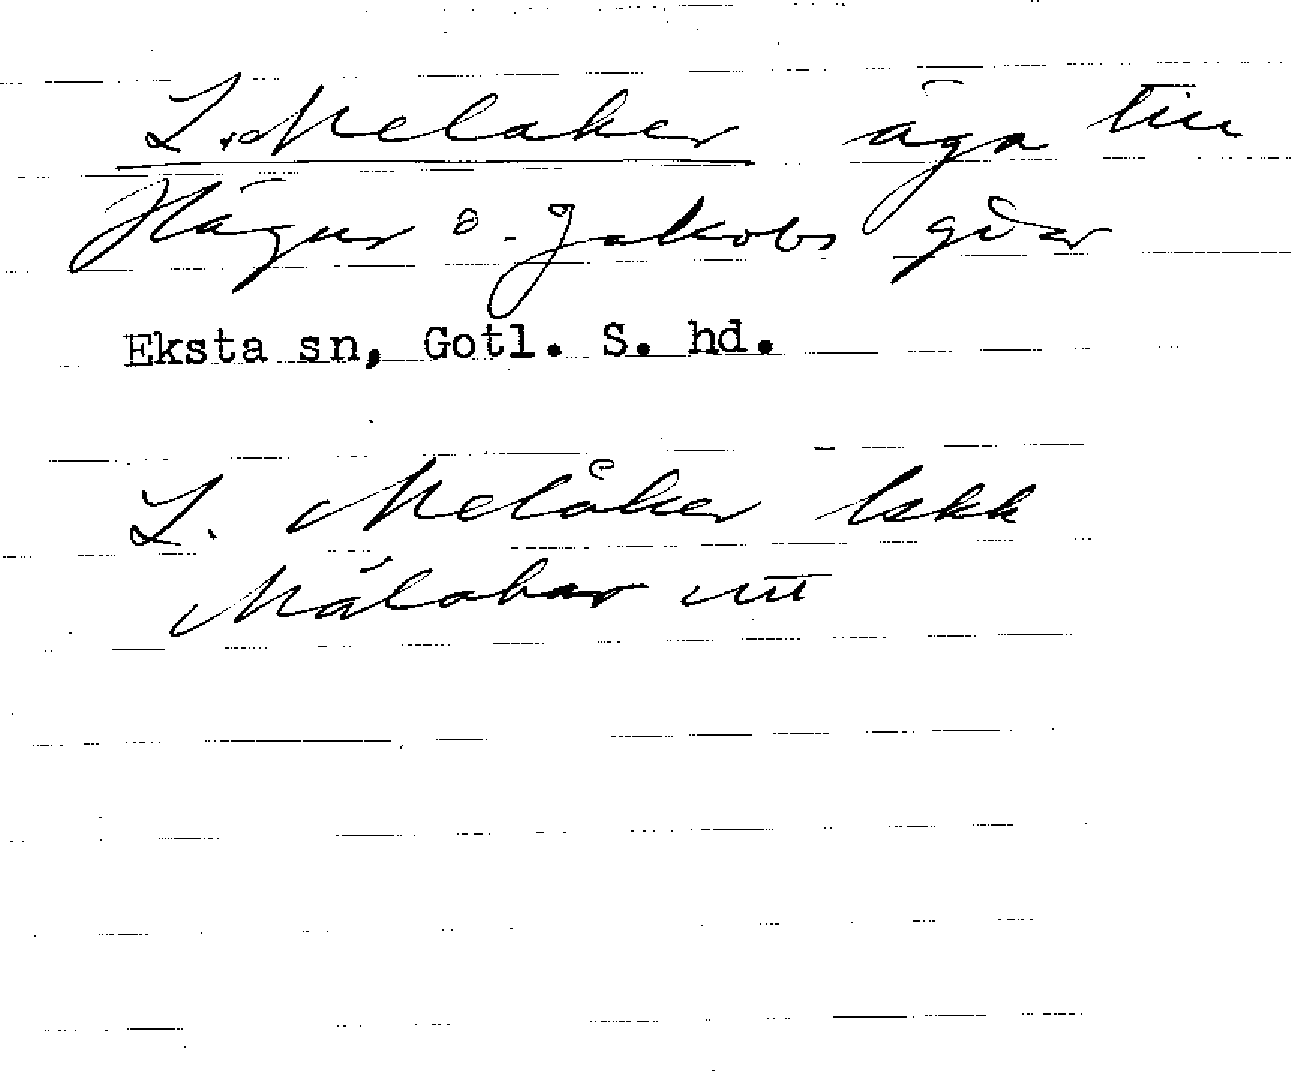 L. Melaker äga till
Hägur o. Jakobs gdar
Eksta sn, Gotl. S. hd.
L. Melåker
Mälakar utt